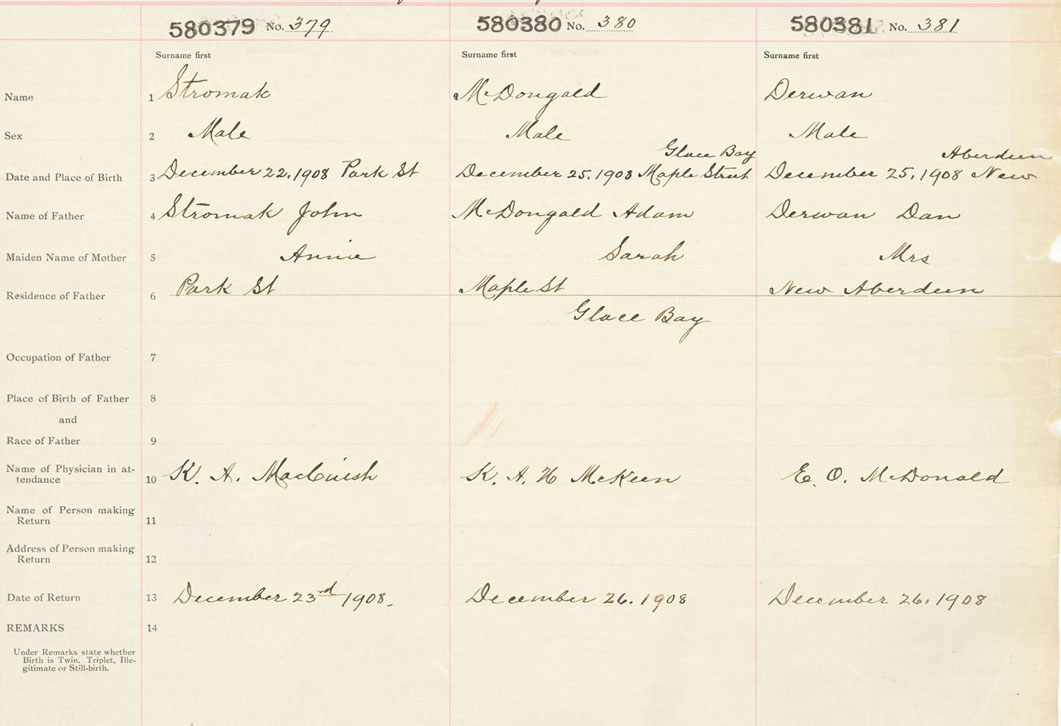 580379 No. 379 580380 No. 380 580381 No. 381
Surname first Surname first Surname first
Name 1 Stromak McDongald Derwan
Sex 2 Male Male Male
Glace Bay Aberdeen
Date and Place of Birth 3 December 22, 1908 Park St December 25, 1908 Maple Street December 25, 1908 New
Name of Father 4 Stromak John McDongald Adam Derwan Dan
Maiden Name of Mother 5 Annie Sarah Mrs
Residence of Father 6 Park St Maple St New Aberdeen
Glace Bay
Occupation of Father 7
Place of Birth of Father 8
and
Race of Father 9
Name of Physician in at-
tendance 10 K. A. MacCuish K. A. H McKeen E. O. McDonald
Name of Person making
Return 11
Address of Person making
Return 12
Date of Return 13 December 23rd 1908. December 26, 1908 December 26, 1908
REMARKS 14
Under Remarks state whether
Birth is Twin. Triplet, Ille-
gitimate or Still-birth.